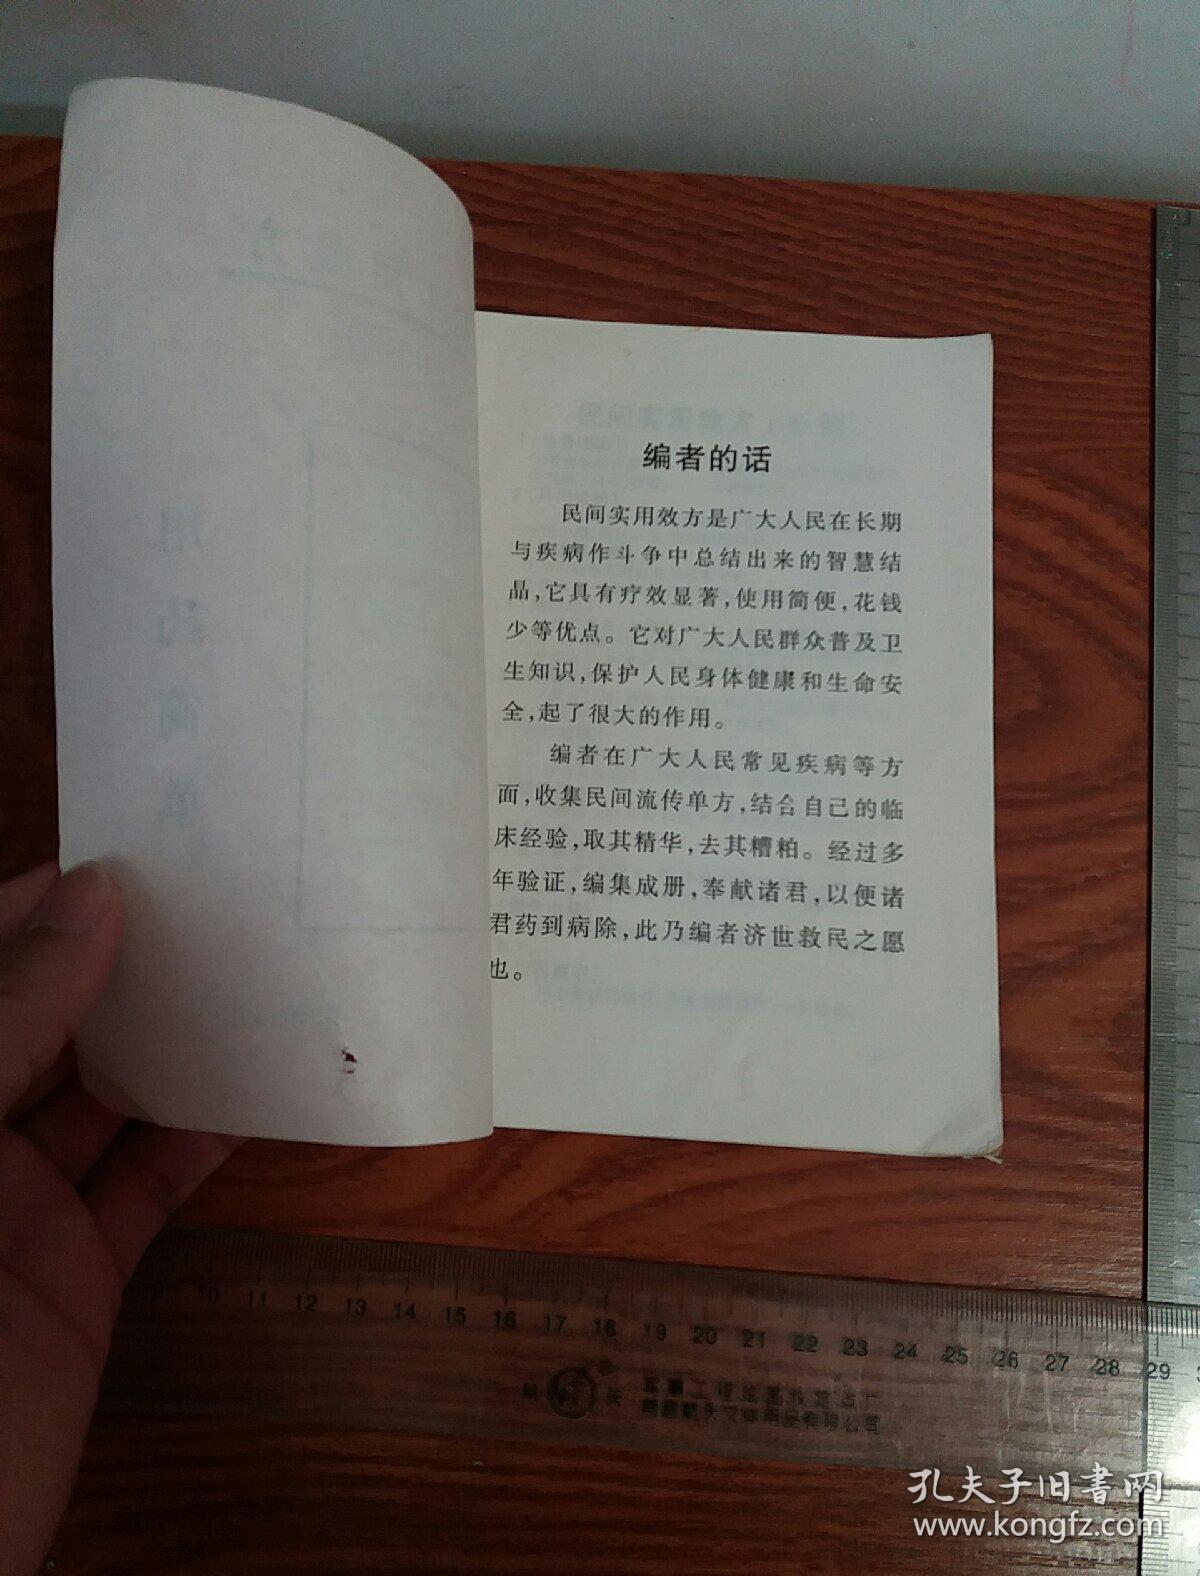 编者的话
民间实用效方是广大人民在长期
与疾病作斗争中总结出来的智慧结
晶,它具有疗效显著,使用简便,花钱
少等优点。它对广大人民群众普及卫
生知识,保护人民身体健康和生命安
全,起了很大的作用。
编者在广大人民常见疾病等方
面,收集民间流传单方,结合自己的临
床经验,取其精华,去其糟粕。经过多
年验证,编集成册,奉献诸君,以便诸
君药到病除,此乃编者济世救民之愿
也。
10 11 12 13 14 15 16 17 18 19 20 21 22 23 24 25 26 27 28 29
孔夫子旧书网
www.kongfz.com